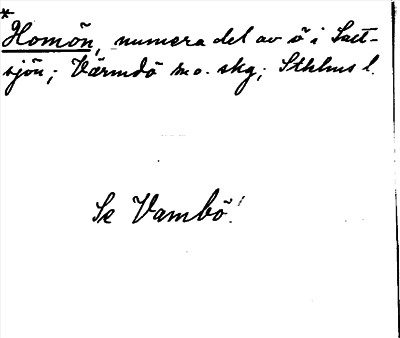 *
Homön, numera del av ö i Salt-
sjön; Värmdö m o. skg; Sthlms l.
Se Vambö!